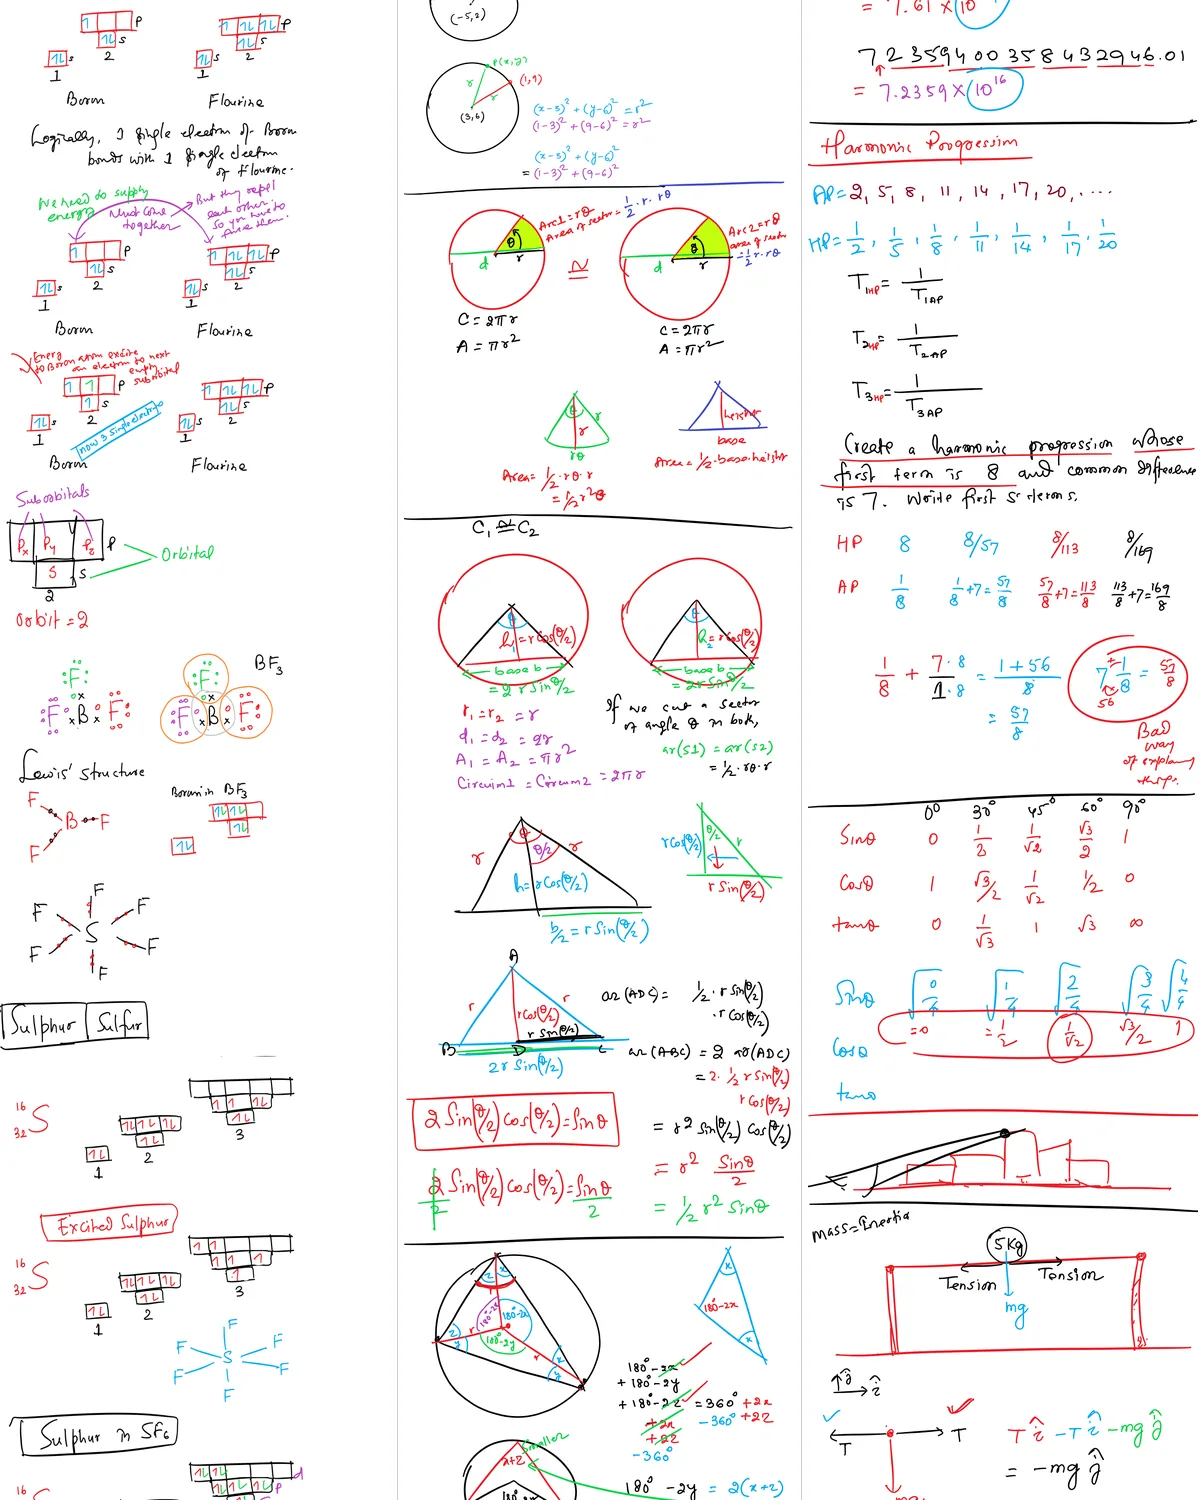 1 s 2 s p
Boron
1 s 2 s p
Flourine
Logically, 1 single electron of Boron
bonds with 1 single electron
of Flourine.
We need to supply
energy
Must come
together
But they repel
each other.
so you have to
force them.
1 s 2 s p
Boron
1 s 2 s p
Flourine
Energy
to Boron atom excite
an electron to next
empty
suborbital
1 s 2 p
Now 3 single electrons
Boron
1 s 2 s p
Flourine
Suborbitals
Px Py Pz p
S s
2
Orbital
Orbit = 2
F
F x B x F
BF3
F
F x B x F
Lewis' structure
F
B F
F
Boron in BF3
F
F F
S
F F
F
Sulphur Sulfur
16
32 S
1 2 3
Excited Sulphur
16
32 S
1 2 3
F
F F
S
F F
F
Sulphur in SF6
16
S
d
p
(-5,2)
P(x,y)
(1,9)
r
r
(3,6)
(x-3)² + (y-6)² = r²
(1-3)² + (9-6)² = r²
(x-3)² + (y-6)²
= (1-3)² + (9-6)²
Arc1 = rθ
Area of sector = 1/2 · r · rθ
θ
d r
C = 2πr
A = πr²
≅
Arc2 = rθ
area of sector
= 1/2 r · rθ
θ
d r
C = 2πr
A = πr²
θ r
r
rθ
Area = 1/2 · rθ · r
= 1/2 r²θ
height
base
Area = 1/2 · base · height
C1 ≅ C2
θ
h1 = r Cos(θ/2)
base b
= 2 r Sin θ/2
θ
h2 = r Cos(θ/2)
base b
= 2r Sin θ/2
r1 = r2 = r
d1 = d2 = 2r
A1 = A2 = πr²
Circum1 = Circum2 = 2πr
If we cut a sector
of angle θ in both,
ar(S1) = ar(S2)
= 1/2 · rθ · r
θ
θ/2
r r
h = r Cos(θ/2)
b/2 = r Sin(θ/2)
θ/2
r
r Cos(θ/2)
r Sin(θ/2)
A
r r
r Cos(θ/2)
r Sin(θ/2)
B D C
2r Sin(θ/2)
ar (ADC) = 1/2 · r Sin(θ/2)
· r Cos(θ/2)
ar (ABC) = 2 ar (ADC)
= 2 · 1/2 r Sin(θ/2)
r Cos(θ/2)
= r² Sin(θ/2) Cos(θ/2)
= r² Sinθ/2
= 1/2 r² Sinθ
2 Sin(θ/2) Cos(θ/2) = Sin θ
2 Sin(θ/2) Cos(θ/2)/2 = Sin θ/2
z x
180°-2z 180°-2x
180°-2y
z y
r r
x y
x
180-2x
x
180° - 2x
+ 180° - 2y
+ 180° - 2z = 360° + 2x
+2x - 360° + 2z
+2z
-360°
x+z
smaller
180° - 2y = 2(x+z)
= 7.61 × 10
7 2 3594 00 35 8 43 2946.01
= 7.2359 × 10^16
Harmonic Progression
AP = 2, 5, 8, 11, 14, 17, 20, ....
HP = 1/2, 1/5, 1/8, 1/11, 1/14, 1/17, 1/20
T1HP = 1/T1AP
T2HP = 1/T2AP
T3HP = 1/T3AP
Create a harmonic progression whose
first term is 8 and common difference
is 7. Write first 5 terms.
HP 8 8/57 8/113 8/169
AP 1/8 1/8 + 7 = 57/8 57/8 + 7 = 113/8 113/8 + 7 = 169/8
1/8 + 7·8/1·8 = 1 + 56/8
= 57/8
7 + 1/8 = 57/8
56
Bad
way
of explaining
things.
0° 30° 45° 60° 90°
Sinθ 0 1/2 1/√2 √3/2 1
Cosθ 1 √3/2 1/√2 1/2 0
tanθ 0 1/√3 1 √3 ∞
Sinθ √0/4 √1/4 √2/4 √3/4 √4/4
= 0 = 1/2 1/√2 √3/2 1
Cosθ
tanθ
Mass = Inertia
5 Kg
Tension Tension
mg
ĵ
î
T T
T î - T î - mg ĵ
= - mg ĵ